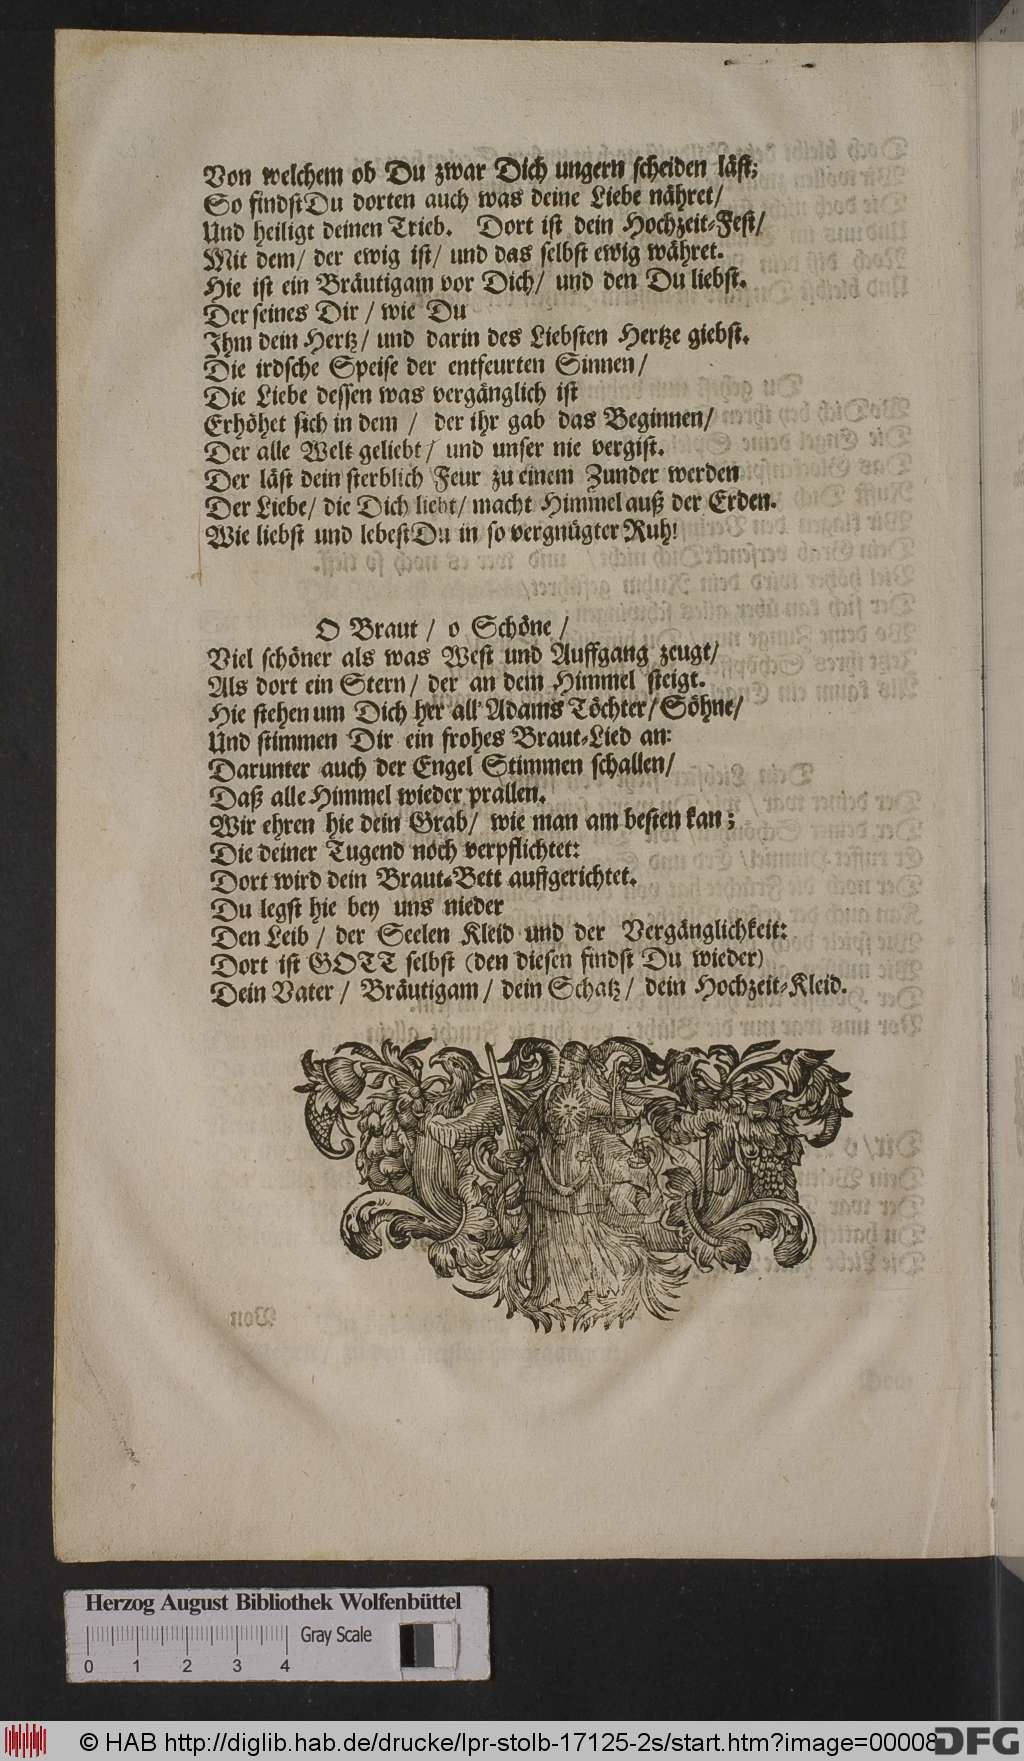 Von welchem ob Du zwar Dich ungern scheiden läst;
So findst Du dorten auch was deine Liebe nähret/
Und heiligt deinen Trieb. Dort ist dein Hochzeit-Fest/
Mit dem/ der ewig ist/ und das selbst ewig währet.
Hie ist ein Bräutigam vor Dich/ und den Du liebst.
Der seines Dir / wie Du
Ihm dein Hertz/ und darin des Liebsten Hertze giebst.
Die irdsche Speise der entfeurten Sinnen/
Die Liebe dessen was vergänglich ist
Erhöhet sich in dem / der ihr gab das Beginnen/
Der alle Welt geliebt/ und unser nie vergist.
Der läst dein sterblich Feur zu einem Zunder werden
Der Liebe/ die Dich liebt/ macht Himmel auß der Erden.
Wie liebst und lebest Du in so vergnügter Ruh!
O Braut / o Schöne /
Viel schöner als was West und Auffgang zeugt/
Als dort ein Stern/ der an dem Himmel steigt.
Hie stehen um Dich her all' Adams Töchter/ Söhne/
Und stimmen Dir ein frohes Braut-Lied an:
Darunter auch der Engel Stimmen schallen/
Daß alle Himmel wieder prallen.
Wir ehren hie dein Grab/ wie man am besten kan;
Die deiner Tugend noch verpflichtet:
Dort wird dein Braut-Bett auffgerichtet.
Du legst hie bey uns nieder
Den Leib / der Seelen Kleid und der Vergänglichkeit:
Dort ist GOTT selbst (den diesen findst Du wieder)
Dein Vater / Bräutigam / dein Schatz / dein Hochzeit-Kleid.
Herzog August Bibliothek Wolfenbüttel
Gray Scale
0 1 2 3 4
© HAB http://diglib.hab.de/drucke/lpr-stolb-17125-2s/start.htm?image=00008
DFG